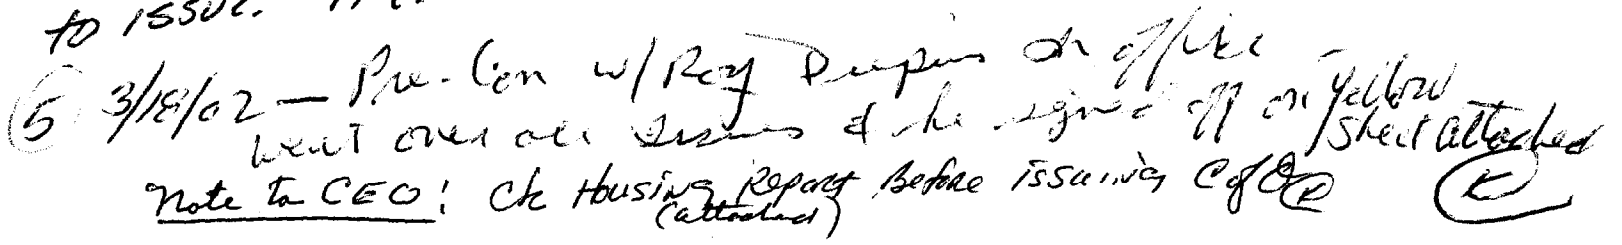 to issue.
⑤ 3/18/02 — Pre-Con w/ Roy in office -
went over all issues & he signed off on yellow sheet attached
Note to CEO! Ck Housing Report Before issuing C of O Ⓚ
(attached)